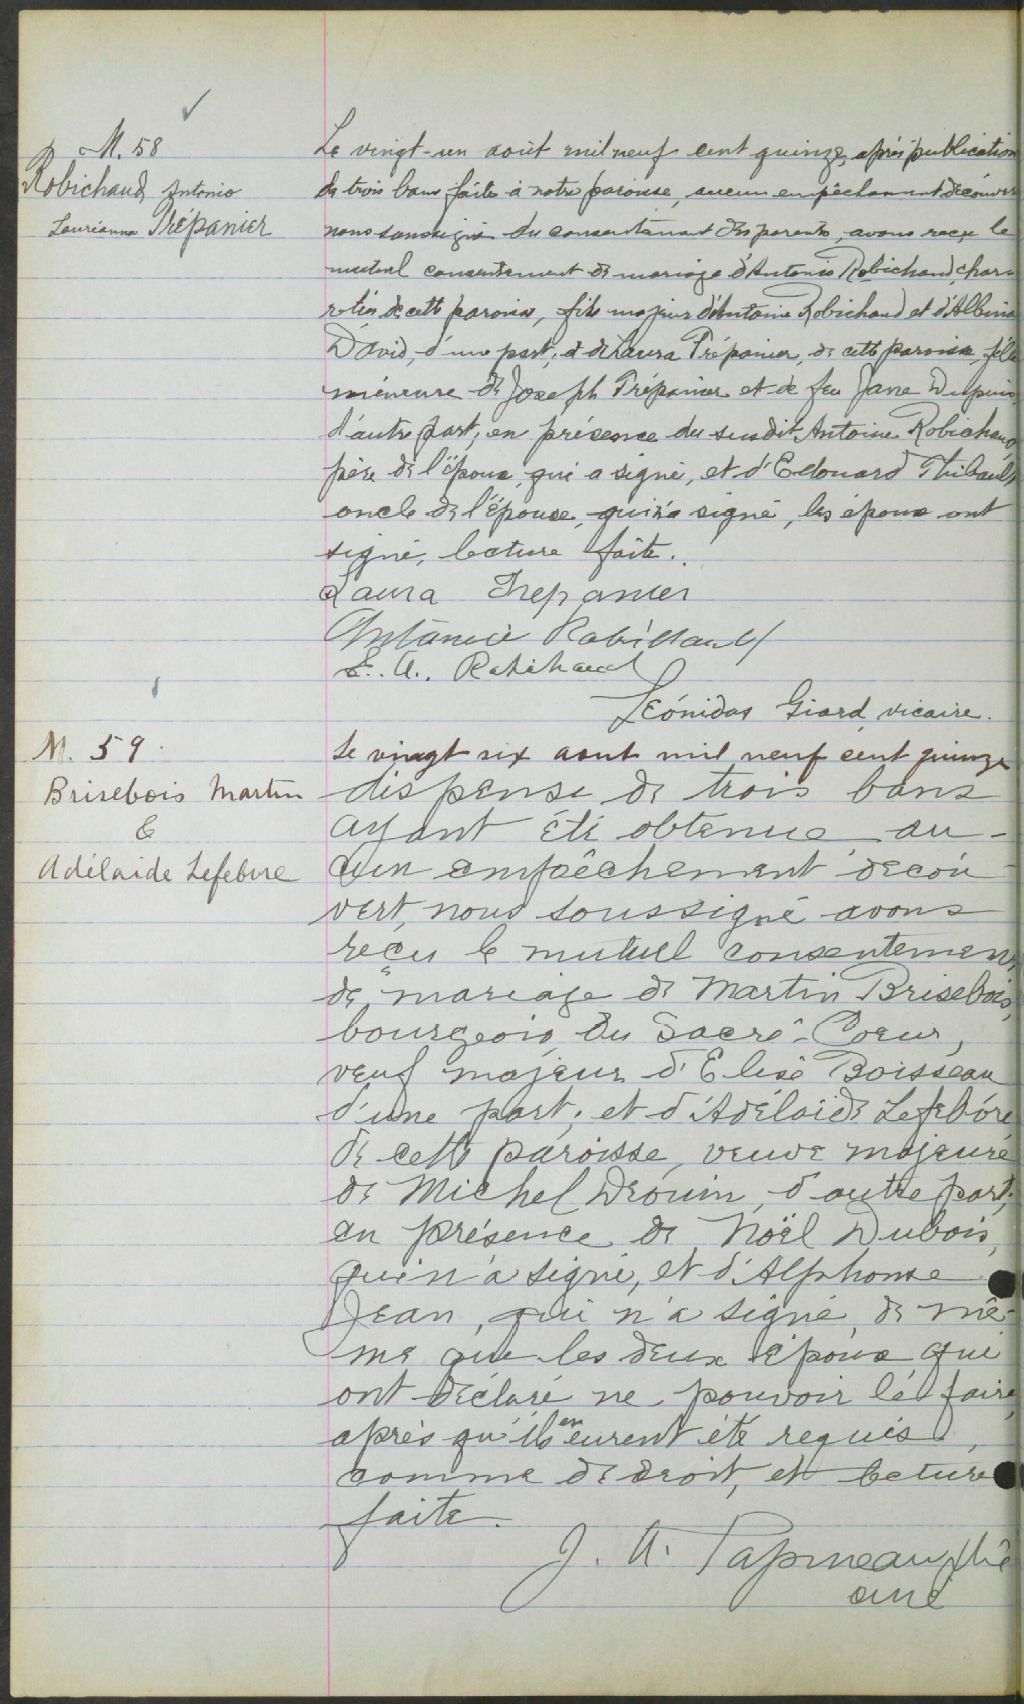 M. 58
Robichaud Antonio
Laurianna Trépanier
Le vingt-un août mil neuf cent quinze, après publication
de trois bans faite à notre paroisse, aucun empêchement découvert
nous soussigné du consentement des parents, avons reçu le
mutuel consentement de mariage d'Antonio Robichaud, char-
retier de cette paroisse, fils majeur d'Antoine Robichaud et d'Albina
David, d'une part; et de Laura Trépanier, de cette paroisse, fille
mineure de Joseph Trépanier et de feu Jane Dupuis,
d'autre part; en présence du susdit Antoine Robichaud
père de l'époux, qui a signé, et d'Edouard Thibault
oncle de l'épouse, qui n'a signé, les époux ont
signé, lecture faite.
Laura Trepanier
Antonio Robillaud
E. A. Robichaud
Leónidas Giard vicaire.
M. 59
Brisebois Martin
&
Adélaide Lefebvre
Le vingt six aout mil neuf cent quinze
dispense de trois bans
ayant été obtenue au-
cun empêchement décou-
vert, nous soussigné avons
reçu le mutuel consentement
de mariage de Martin Brisebois,
bourgeois du Sacré-Coeur,
veuf majeur d'Elisé Boisseau
d'une part; et d'Adélaïde Lefebvre
de cette paroisse, veuve majeure
de Michel Drouin, d'autre part;
en présence de Noël Dubois,
qui n'a signé, et d'Alphonse
Jean, qui n'a signé, de mê-
me que les deux époux qui
ont déclaré ne pouvoir le faire,
après qu'ils en eurent été requis,
comme de droit, et lecture
faite.
J. A. Papineau, ptre
curé